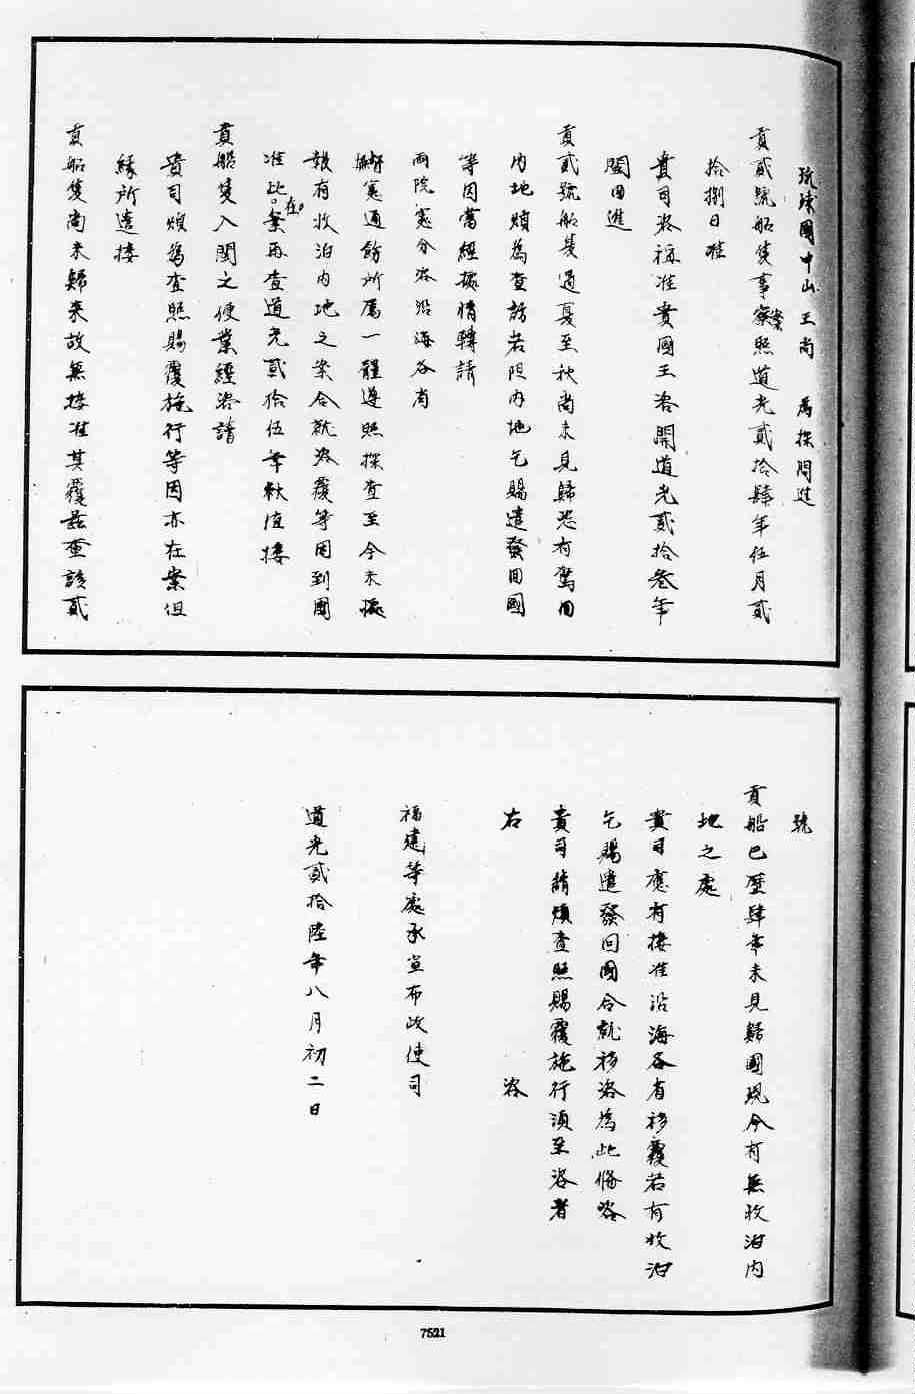 琉球國中山王尚　為探問進
貢貳號船隻事案照道光貳拾肆年伍月貳
拾捌日准
貴司咨稱准貴國王咨開道光貳拾叁年
閩回進
貢貳號船隻過夏至秋尚未見歸恐有駕回
內地煩為查訪若限內地乞賜遣發回國
等因當經據情轉請
兩院憲分咨沿海各省
憲通飭所属一體遵照探查至今未據
報有收泊內地之案合就咨覆等因到國
准此在案再查道光貳拾伍年秋值接
貢船隻入閩之便業經咨請
貴司煩為查照賜覆施行等因亦在案但
緣所遣接
貢船隻尚未歸來故無接准其覆茲查該貳
號
貢船已歷肆年未見歸國現今有無收泊內
地之處
貴司應有接准沿海各省移覆若有收泊
乞賜遣發回國合就移咨為此備咨
貴司請煩查照賜覆施行須至咨者
右　咨
福建等處承宣布政使司
道光貳拾陸年八月初二日
7521